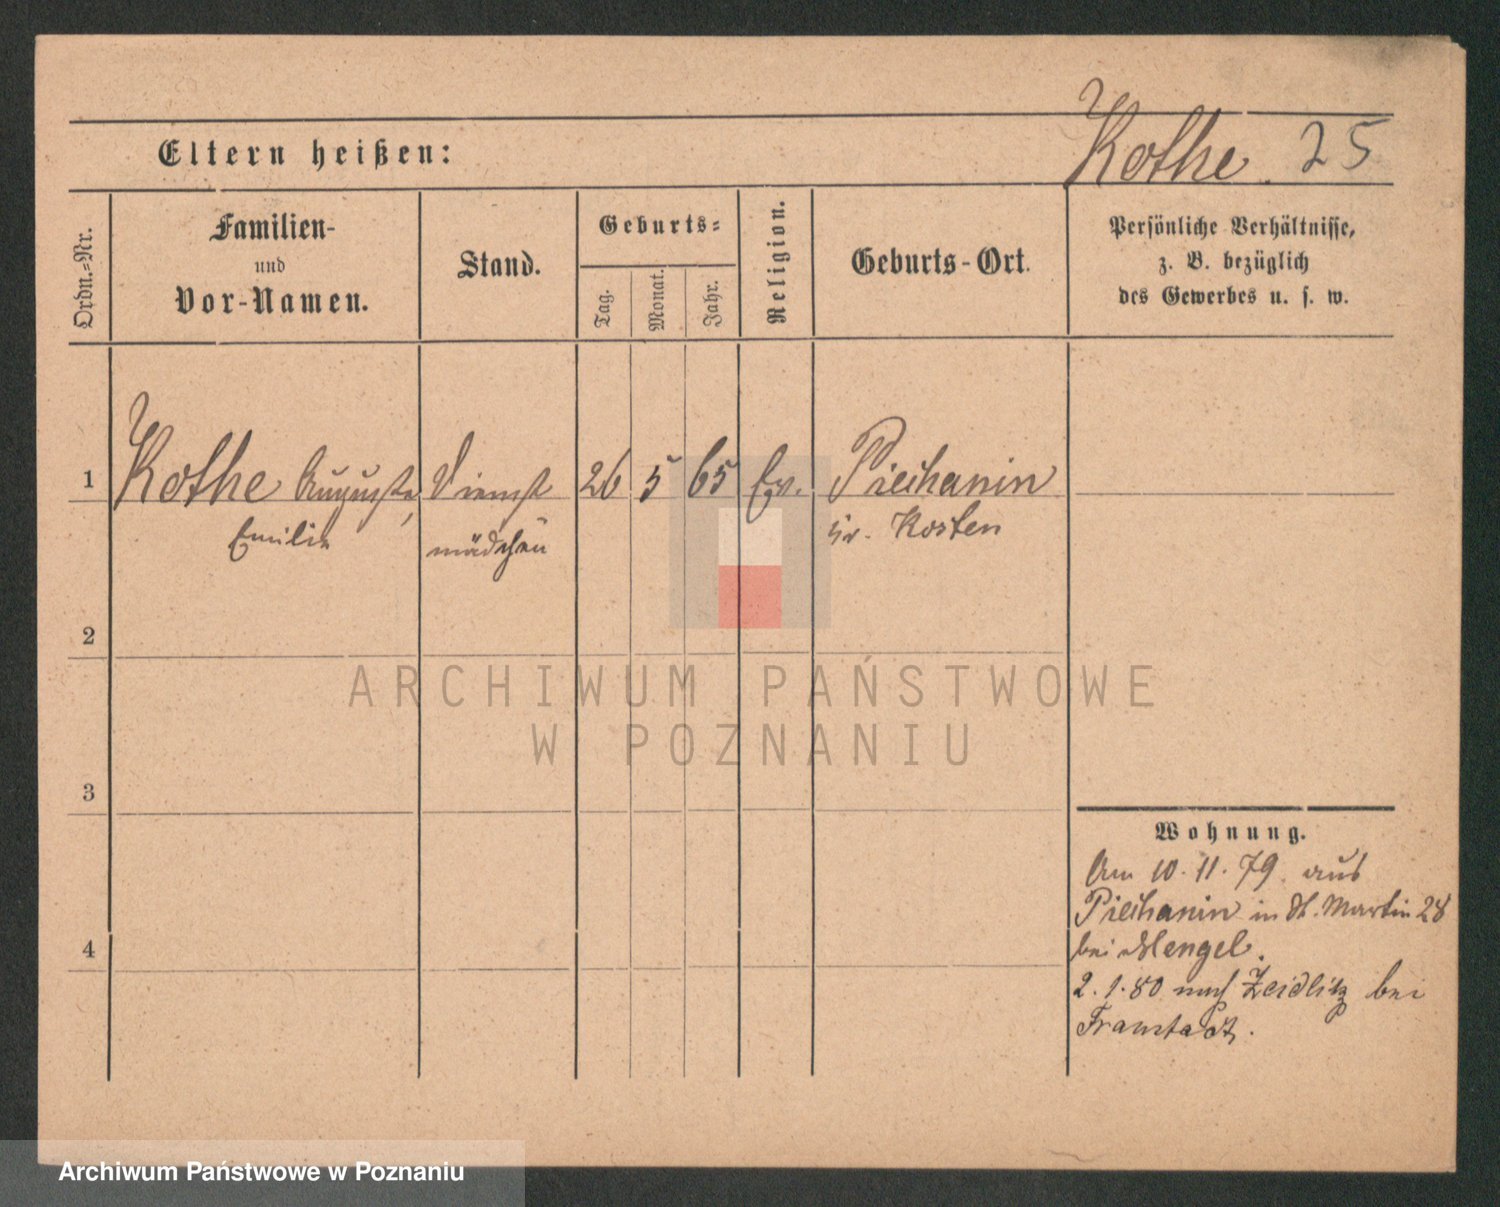 Kothe. 25
Eltern heißen:
Ordn.=Nr.
Familien-
und
Vor-Namen.
Stand.
Geburts=
Tag.
Monat.
Jahr.
Religion.
Geburts-Ort.
Persönliche Verhältnisse,
z. B. bezüglich
des Gewerbes u. s. w.
1 Kothe Auguste, Dienst 26 5 65 Ev. Piechanin
Emilie mädchen Kr. Kosten
2
3
4
Wohnung.
Am 10.11.79. aus
Piechanin in St. Martin 28
bei Mengel.
2.1.80 nach Zeidlitz bei
Fraustadt.
ARCHIWUM PAŃSTWOWE
W POZNANIU
Archiwum Państwowe w Poznaniu